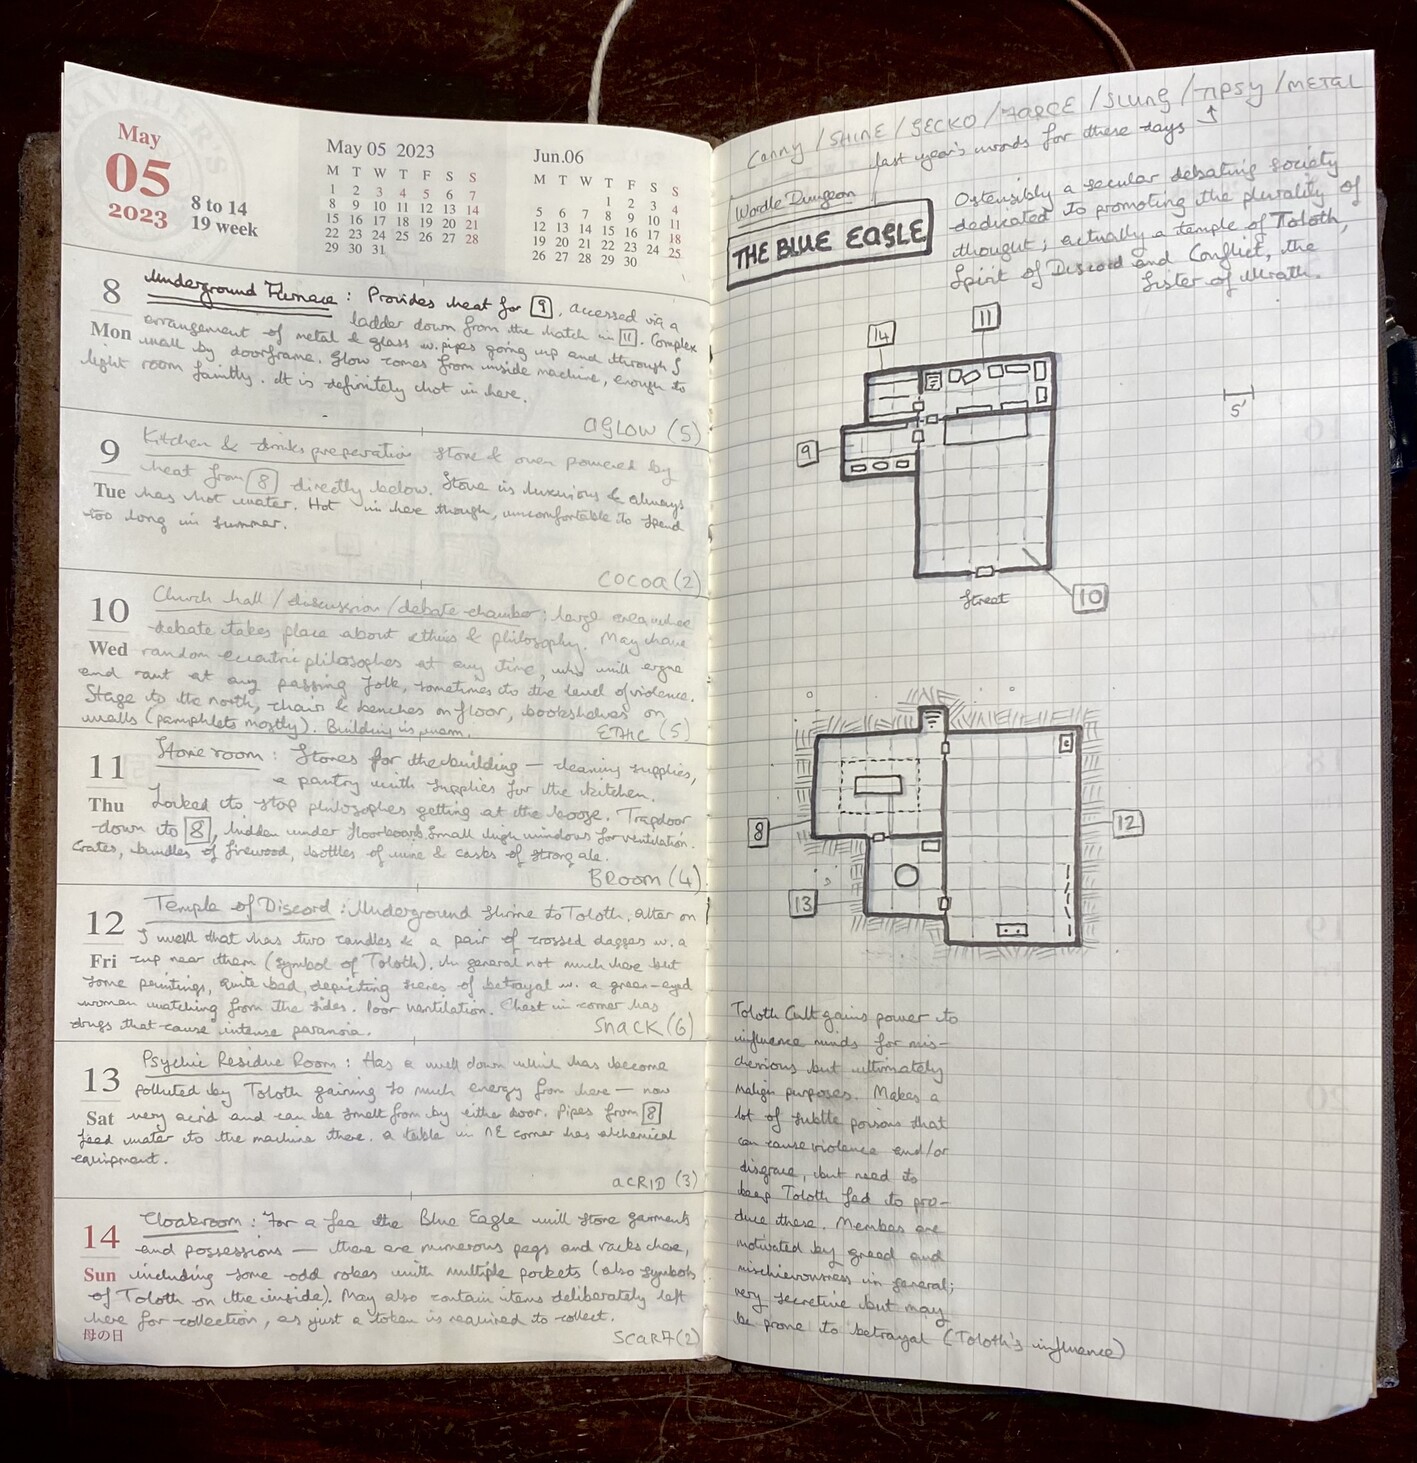 TRAVELER'S
May
05
2023
8 to 14
19 week
May 05 2023
M T W T F S S
1 2 3 4 5 6 7
8 9 10 11 12 13 14
15 16 17 18 19 20 21
22 23 24 25 26 27 28
29 30 31
Jun.06
M T W T F S S
1 2 3 4
5 6 7 8 9 10 11
12 13 14 15 16 17 18
19 20 21 22 23 24 25
26 27 28 29 30
8
Mon
Underground Furnace : Provides heat for 9, accessed via a
ladder down from the hatch in 11. Complex
arrangement of metal & glass w. pipes going up and through S
wall by doorframe. Glow comes from inside machine, enough to
light room faintly. It is definitely hot in here.
AGLOW (5)
9
Tue
Kitchen & drinks preparation Stove & oven powered by
heat from 8 directly below. Stove is luxurious & always
has hot water. Hot in here though, uncomfortable to spend
too long in summer.
COCOA (2)
10
Wed
Church hall / discussion / debate chamber : large area where
debate takes place about ethics & philosophy. May have
random eccentric philosophes at any time, who will argue
and rant at any passing folk, sometimes to the level of violence.
Stage to the north, chair & benches on floor, bookshelves on
walls (pamphlets mostly). Building is warm.
ETHIC (5)
11
Thu
Store room : Stores for the building — cleaning supplies,
a pantry with supplies for the kitchen.
Locked to stop philosophes getting at the booze. Trapdoor
down to 8, hidden under floorboards. Small high windows for ventilation.
Crates, bundles of firewood, bottles of wine & casks of strong ale.
BROOM (4)
12
Fri
Temple of Discord : Underground shrine to Toloth. Altar on
S wall that has two candles & a pair of crossed daggers w. a
cup near them (symbol of Toloth). In general not much here but
some paintings, quite bad, depicting scenes of betrayal w. a green-eyed
woman watching from the sides. Poor ventilation. Chest in corner has
drugs that cause intense paranoia.
SNACK (6)
13
Sat
Psychic Residue Room : Has a well down which has become
polluted by Toloth gaining so much energy from here — now
very acrid and can be smelt from by either door. Pipes from 8
feed water to the machine there. A table in NE corner has alchemical
equipment.
ACRID (3)
14
Sun
母の日
Cloakroom : For a fee the Blue Eagle will store garments
and possessions — there are numerous pegs and racks here,
including some odd robes with multiple pockets (also symbols
of Toloth on the inside). May also contain items deliberately left
here for collection, as just a token is required to collect.
SCARF (2)
Canny / SHINE / GECKO / FARCE / SLUNG / TIPSY / METAL
last year's words for these days
Wordle Dungeon
THE BLUE EAGLE
Ostensibly a secular debating society
dedicated to promoting the plurality of
thought; actually a temple of Toloth,
Spirit of Discord and Conflict, the
Sister of Wrath.
14
11
5'
9
Street
10
8
12
13
Toloth Cult gains power to
influence minds for mis-
chevious but ultimately
malign purposes. Makes a
lot of subtle poisons that
can cause violence and/or
disgrace, but need to
keep Toloth fed to pro-
duce these. Members are
motivated by greed and
mischievousness in general;
very secretive but may
be prone to betrayal (Toloth's influence)